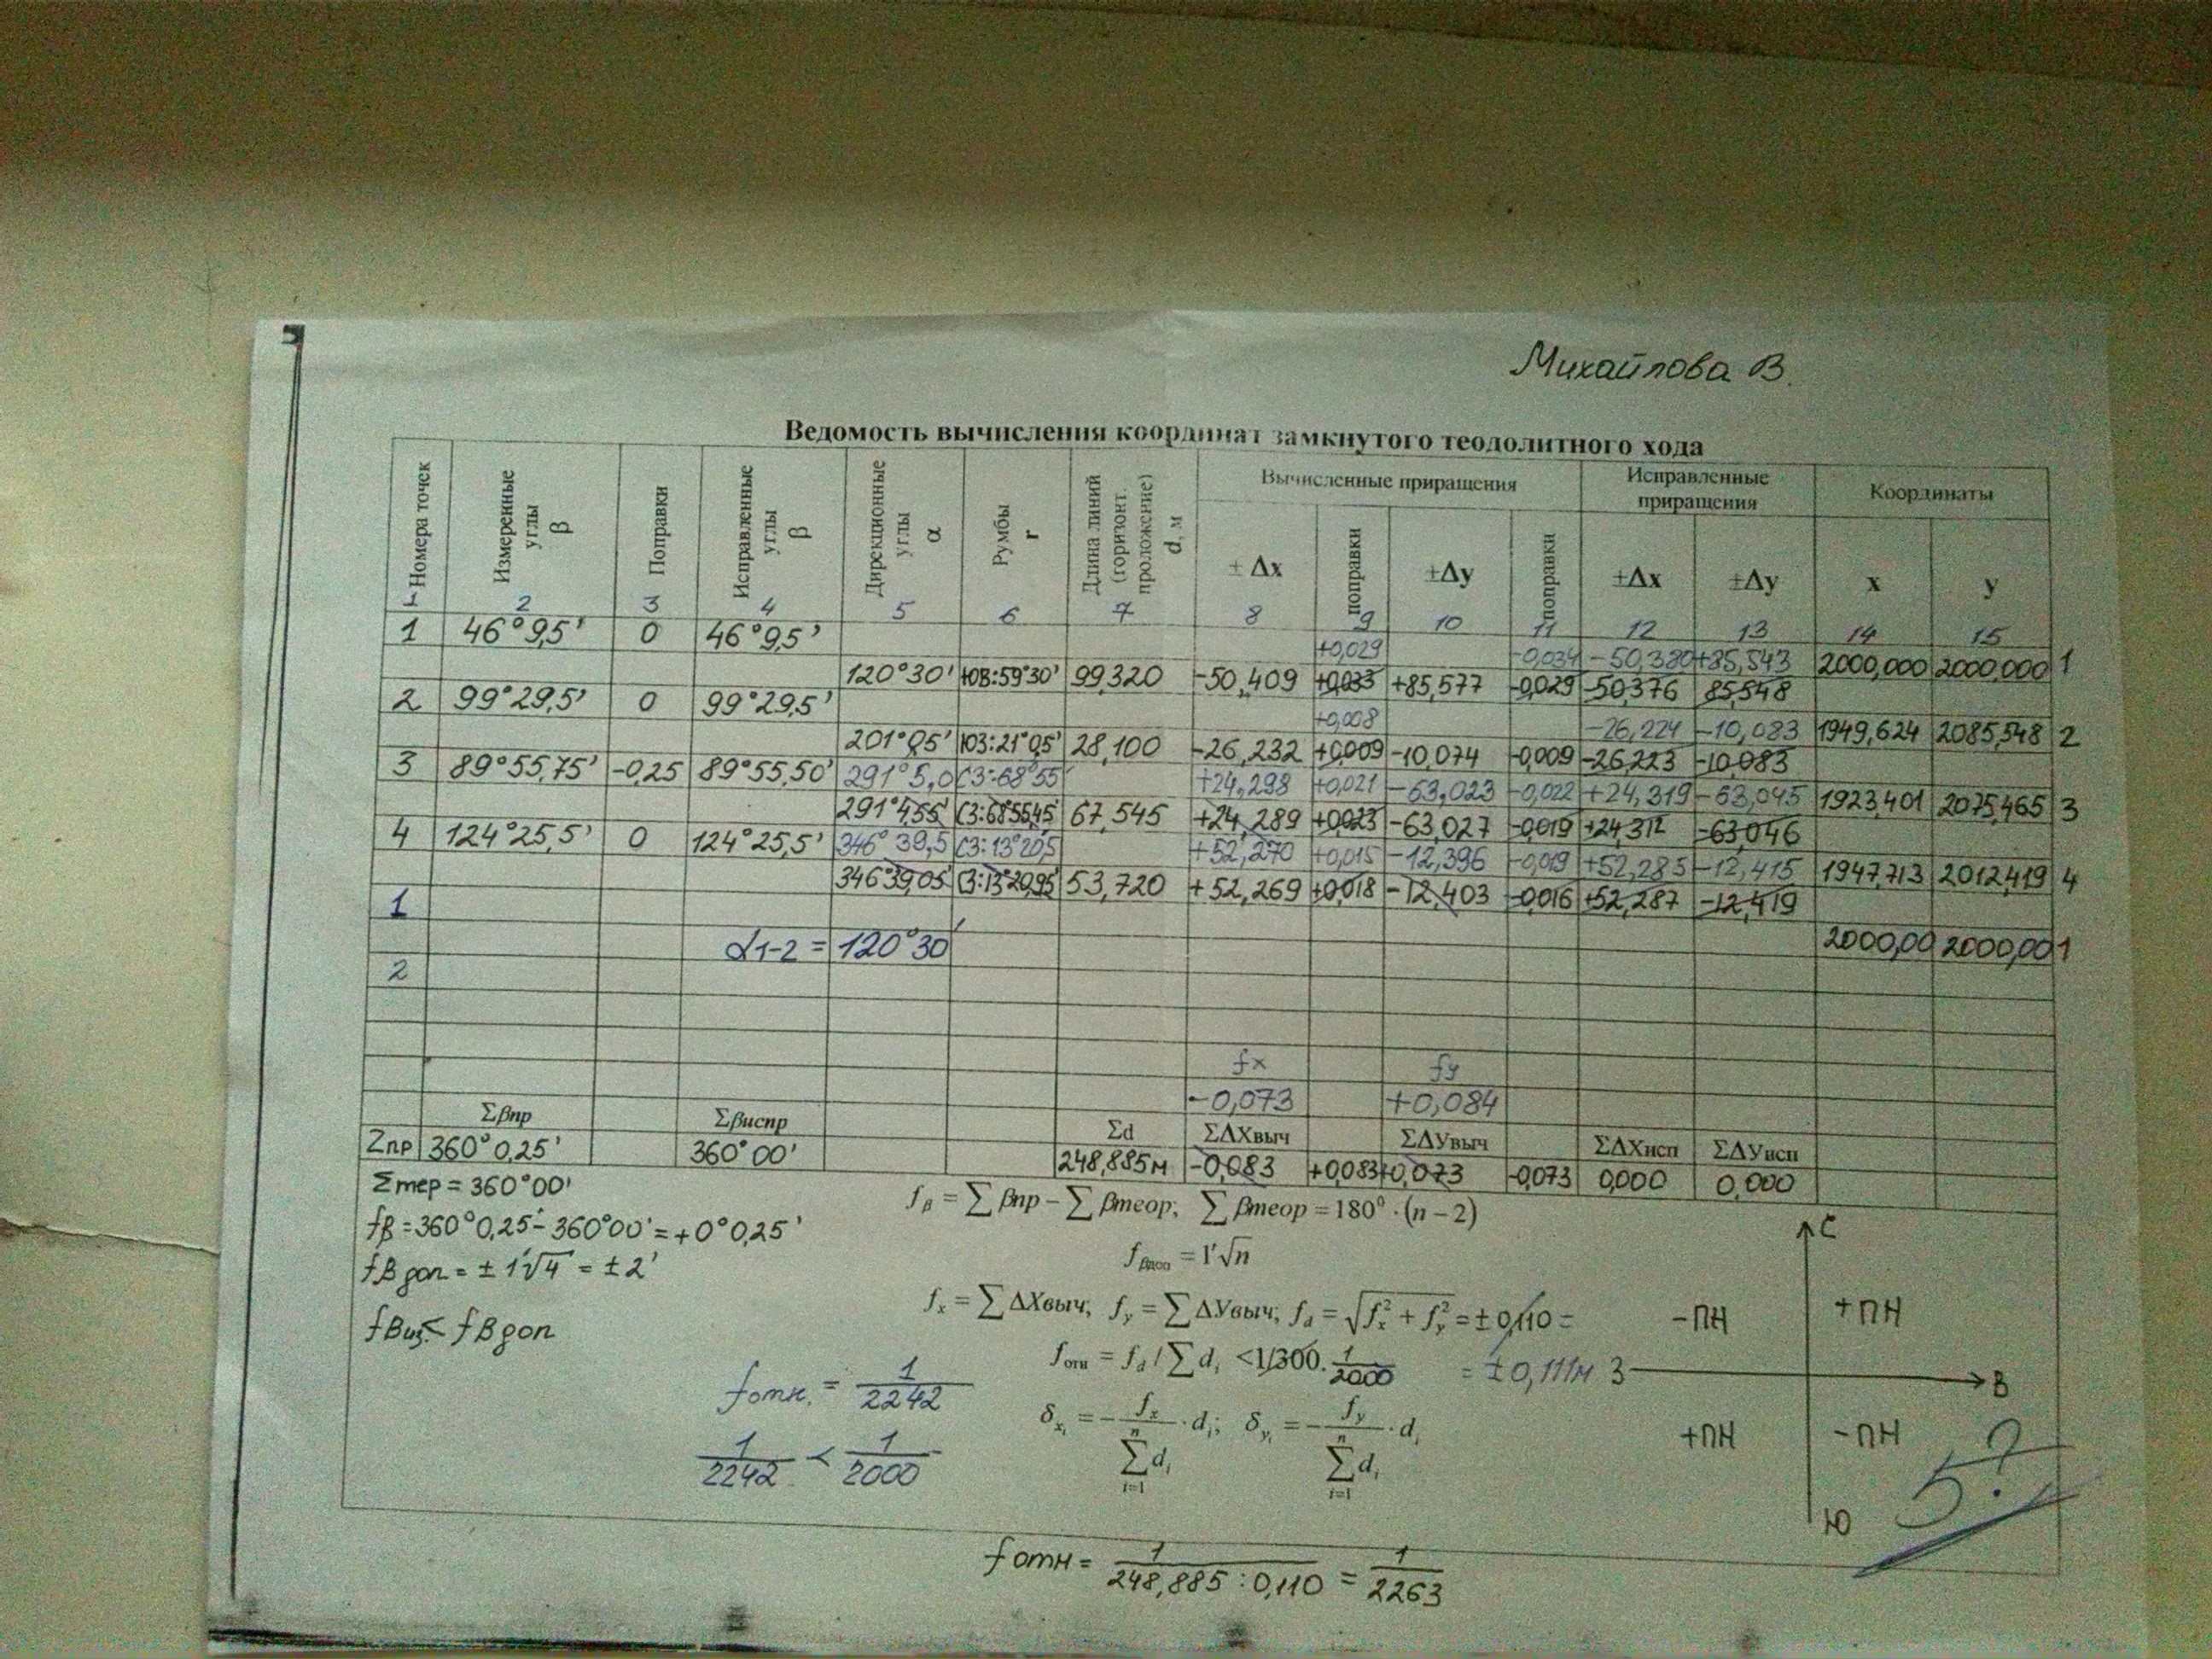 Михайлова В.
Ведомость вычисления координат замкнутого теодолитного хода
Номера точек
Измеренные углы β
Поправки
Исправленные углы β
Дирекционные углы α
Румбы r
Длина линий (горизонт. проложение) d, м
Вычисленные приращения
Исправленные приращения
Координаты
± Δx
поправки
±Δy
поправки
±Δx
±Δy
x
y
1 2 3 4 5 6 7 8 9 10 11 12 13 14 15
1 46°9,5' 0 46°9,5'
+0,029 -0,034 -50,380 +85,543
120°30' ЮВ:59°30' 99,320 -50,409 +0,033 +85,577 -0,029 -50,376 85,548 2000,000 2000,000 1
2 99°29,5' 0 99°29,5'
+0,008 -26,224 -10,083
201°05' ЮЗ:21°05' 28,100 -26,232 +0,009 -10,074 -0,009 -26,223 -10,083 1949,624 2085,548 2
3 89°55,75' -0,25 89°55,50'
291°5,0 СЗ:68°55' +24,298 +0,021 -63,023 -0,022 +24,319 -63,045
291°4,55' СЗ:68 55,45 67,545 +24,289 +0,023 -63,027 -0,019 +24,312 -63,046 1923,401 2075,465 3
4 124°25,5' 0 124°25,5'
346°39,5 СЗ:13°20,5 +52,270 +0,015 -12,396 -0,019 +52,285 -12,415
346°39,05' СЗ:13°20,95' 53,720 +52,269 +0,018 -12,403 -0,016 +52,287 -12,419 1947,713 2012,419 4
1
α1-2 = 120°30'
2000,00 2000,00 1
2
fx fy
-0,073 +0,084
Σβпр Σβиспр Σd ΣΔXвыч ΣΔУвыч ΣΔXисп ΣΔУисп
Σпр 360°0,25' 360°00' 248,885м -0,083 +0,083 +0,073 -0,073 0,000 0,000
Σтер = 360°00'
fβ = ∑ βпр − ∑ βтеор; ∑ βтеор = 180° · (n − 2)
fβ = 360°0,25' - 360°00' = +0°0,25'
fβдоп = 1'√n
fβдоп = ±1√4 = ±2'
fx = ∑ ΔXвыч; fy = ∑ ΔУвыч; fd = √fx² + fy² = ±0,110 =
fβиз < fβдоп
fотн = fd / ∑ di < 1/300. 1/2000 = ±0,111м
fотн. = 1/2242
δxi = − fx / ∑di · di; δyi = − fy / ∑di · di
n i=1 n i=1
1/2242 < 1/2000
С
-ПН +ПН
З В
+ПН -ПН
Ю
5?
fотн = 1/248,885 : 0,110 = 1/2263